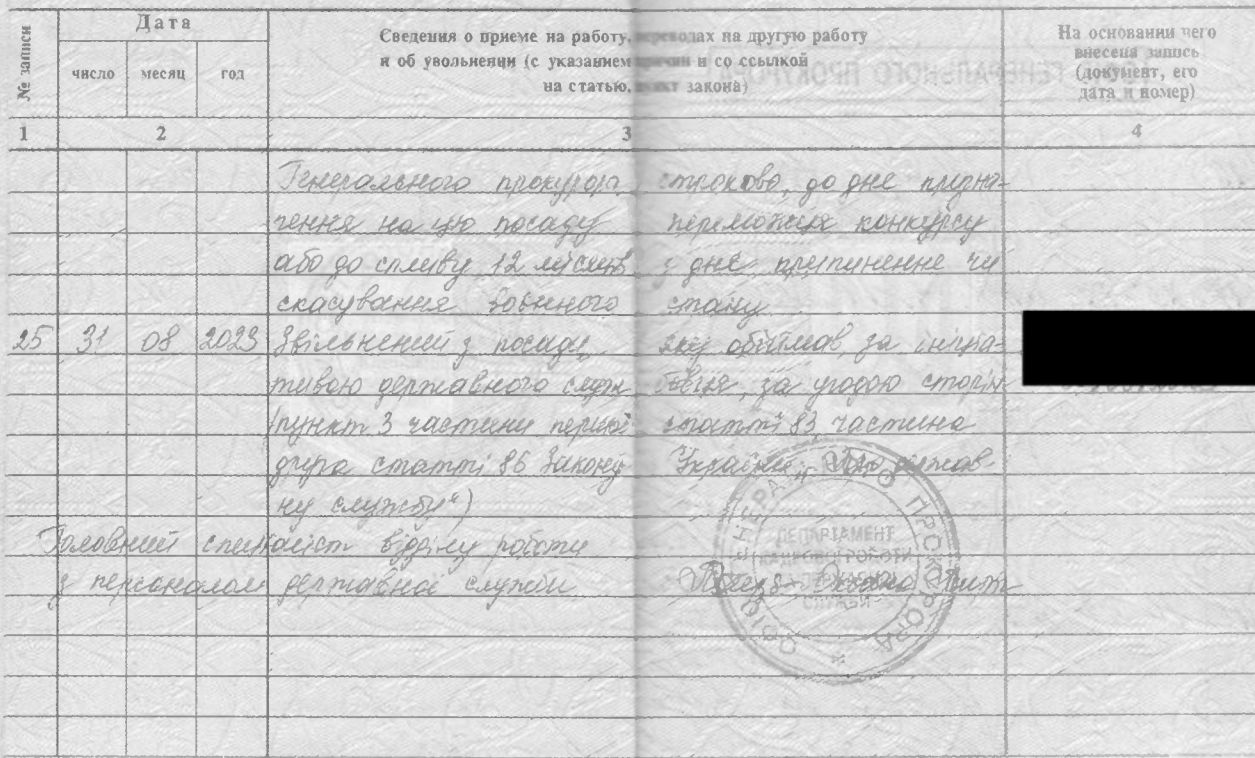 № записи
Дата
число месяц год
Сведения о приеме на работу, переводах на другую работу
и об увольнении (с указанием причин и со ссылкой
на статью, пункт закона)
На основании чего
внесена запись
(документ, его
дата и номер)
1 2 3 4
Генерального прокурора, строково, до дня призна-
чення на цю посаду переможця конкурсу
або до спливу 12 місяців з дня припинення чи
скасування воєнного стану
25 31 08 2023 Звільнений з посади, яку обіймав, за ініціа-
тивою державного службовця, за угодою сторін
(пункт 3 частини першої статті 83 частина
друга статті 86 Закону України „Про держав-
ну службу“)
Головний спеціаліст відділу роботи
з персоналом державної служби
ОФІС ГЕНЕРАЛЬНОГО ПРОКУРОРА
ДЕПАРТАМЕНТ
КАДРОВОЇ РОБОТИ
ТА ДЕРЖАВНОЇ
СЛУЖБИ